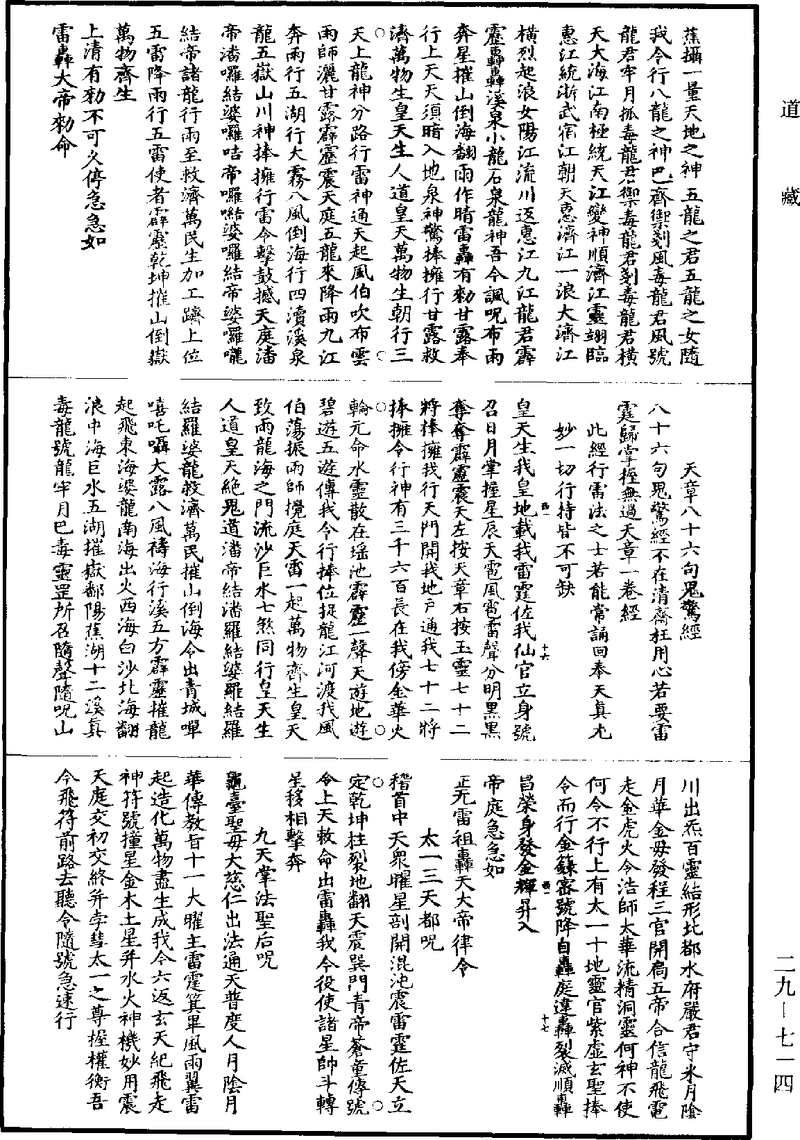 道藏
蕉攝一量天地之神五龍之君五龍之女隨
我令行八龍之神巴齊禦剗風毒龍君風號
龍君牢月抓毒龍君禦毒龍君剗毒龍君橫
天大海江南極統天江變神順濟江靈翊臨
惠江統浙武宿江朝天惠濟江一浪大濟江
橫烈起浪女陽江流川返惠江九江龍君霹
靂轟轟溪泉小龍石泉龍神吾令諷呪布雨
奔星摧山倒海翻雨作晴雷轟有勑甘露奉
行上天天須暗入地泉神驚捧擁行甘露救
濟萬物生皇天生人道皇天萬物生朝行三
天上龍神分路行雷神通天起風伯吹布雲
雨師灑甘露霹靂震天庭五龍來降雨九江
奔雨行五湖行大霧八風倒海行四瀆溪泉
龍五嶽山川神捧擁行雷令擊鼓撼天庭潘
帝潘囉結婆囉咭帝囉嗾婆囉結帝婆囉嚨
結帝諸龍行雨至救濟萬民生加工躋上位
五雷降雨行五雷使者霹靂乾坤摧山倒嶽
萬物齊生
上清有勑不可久停急急如
雷轟大帝勑命
天章八十六句鬼驚經
八十六句鬼驚經不在清齋枉用心若要雷
霆歸掌握無過天章一卷經
此經行雷法之士若能常誦回奉天真尤
妙一切行持皆不可缺
皇天生我皇地載我雷霆佐我仙官立身號
召日月掌握星辰天雹風雹雷聲分明黑黑
奪奪霹靂震天左按天章右按玉靈七十二
將捧擁我行天門開我地戶通我七十二將
捧擁令行神有三千六百長在我傍金華火
輪元命水靈散在瑶池霹靂一聲天遊地遊
碧遊五遊傳我令行捧位捉龍江河渡我風
伯蕩振雨師攪庭天雷一起萬物齊生皇天
致雨龍海之門流沙巨水七煞同行皇天生
人道皇天絶鬼道潘帝結潘羅結婆羅結羅
結羅婆龍救濟萬民摧山倒海令出青城嘽
嘻吒囁大露八風禱海行溪五方霹靂摧龍
起飛東海婆龍南海出火西海白沙北海翻
浪中海巨水五湖摧嶽鄱陽蕉湖十二溪真
毒龍號龍牢月巴毒靈罡所召隨聲隨呪山
川出炁百靈結形北都水府嚴君守米月陰
月華金毋發程三官開扃五帝合信龍飛電
走金虎火令浩師太華流精洞靈何神不使
何令不行上有太一十地靈官紫虛玄聖捧
令而行金籙密號降自轟庭違轟裂滅順轟
昌榮身發金輝昇入
帝庭急急如
正元雷祖轟天大帝律令
太一三天都呪
稽首中天衆曜星剖開混沌震雷霆佐天立
定乾坤柱裂地翻天震巽門青帝蒼童傳號
令上天敕命出雷轟我令役使諸星帥斗轉
星移相擊奔
九天掌法聖后呪
龜臺聖毋大慈仁出法通天普度人月陰月
華傳教旨十一大曜主雷霆箕畢風雨翼雷
起造化萬物盡生成我今六返玄天紀飛走
神符號撞星金木土星并水火神機妙用震
天庭交初交終并孛彗太一之尊握權衡吾
今飛符前路去聽令隨號急速行
二九—七一四